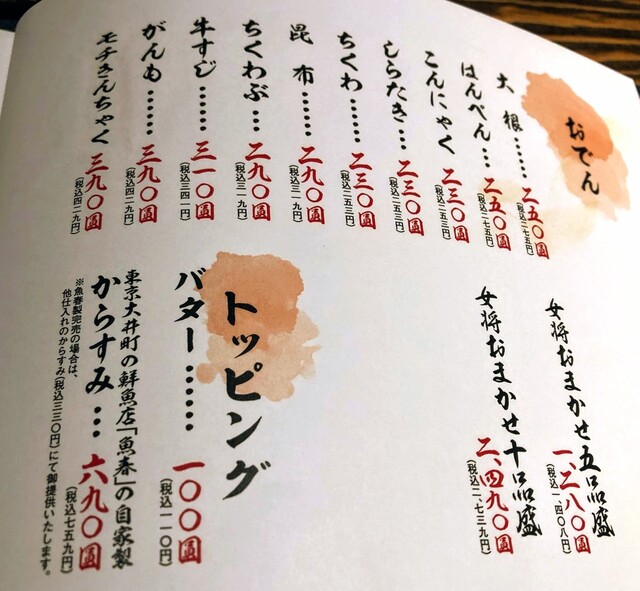 おでん
大根……二五〇圓
(税込二七五円)
はんぺん…二五〇圓
(税込二七五円)
こんにゃく 二三〇圓
(税込二五三円)
しらたき…二三〇圓
(税込二五三円)
ちくわ……二三〇圓
(税込二五三円)
昆布……二九〇圓
(税込三一九円)
ちくわぶ…二九〇圓
(税込三一九円)
牛すじ……三一〇圓
(税込三四一円)
がんも……三九〇圓
(税込四二九円)
モチきんちゃく 三九〇圓
(税込四二九円)
女将おまかせ五品盛
一、二八〇圓
(税込一、四〇八円)
女将おまかせ十品盛
二、四九〇圓
(税込二、七三九円)
トッピング
バター……一〇〇圓
(税込一一〇円)
東京大井町の鮮魚店「魚春」の自家製
からすみ…六九〇圓
(税込七五九円)
※魚春製完売の場合は、
他仕入れのからすみ(税込三三〇円)にて御提供いたします。